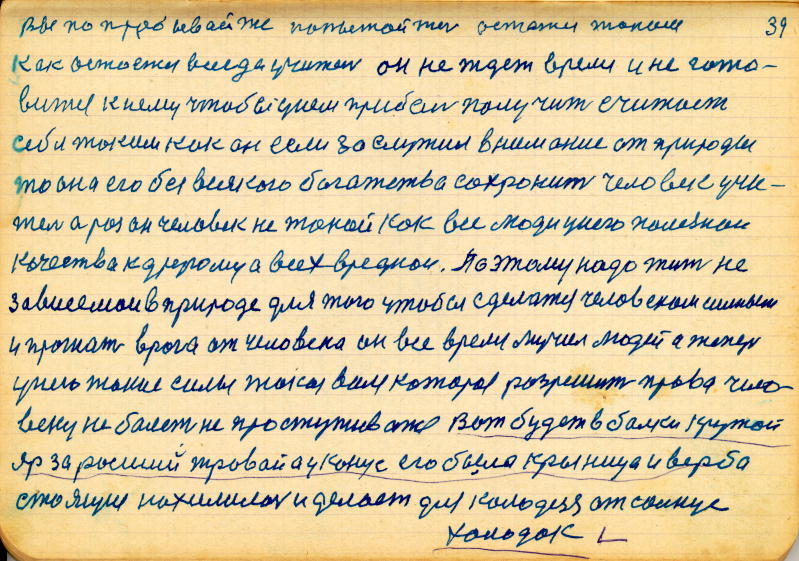 39
Все попробывай же попытайтес остатся таком
Как остается всегда учител он не ждет время и не гото-
вится к нему чтобы у него прибыл получит считает
себя таким как он если заслужил внимание от природы
то она его без всякого богатства сохронит человек учи-
тел а роз он человек не такой как все люди у него полезнои
качества к другому а всех вреднои. Поэтому надо жит не
зависемои в природе для того чтобы сделатся человеком силным
и прогнат врога от человека он все время мучил людей а тепер
у него такие силы такая воля которае розрешит права чело-
веку не балет не проступиватся Вот будет в балки крутой
яр заросший травай а у конце его была крыница и верба
стоящие нахилилас и делает для колодезя от сонце
холодок